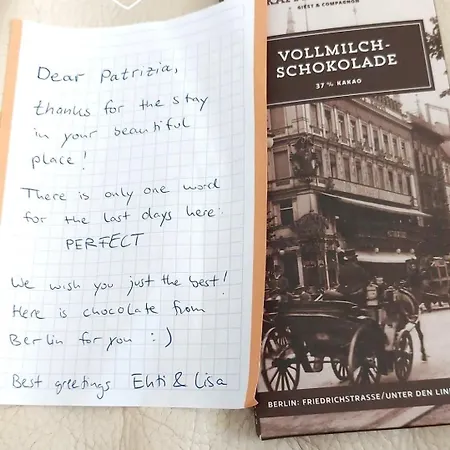 Dear Patrizia,
thanks for the stay
in your beautiful
place!
There is only one word
for the last days here:
PERFECT
We wish you just the best!
Here is chocolate from
Berlin for you :)
Best greetings Ehti & Lisa
GIEST & COMPAGNON
VOLLMILCH-
SCHOKOLADE
37 % KAKAO
BERLIN: FRIEDRICHSTRASSE/UNTER DEN LIN